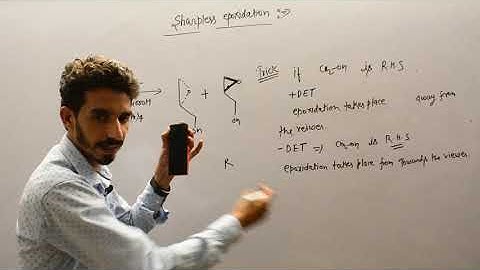 Sharpless epoxidation :->
Trick if CH2-OH is R.H.S.
+DET
epoxidation takes place away from
the viewer.
-DET => CH2-OH is R.H.S
epoxidation takes place from towards the viewer.
+
OH
OH
R